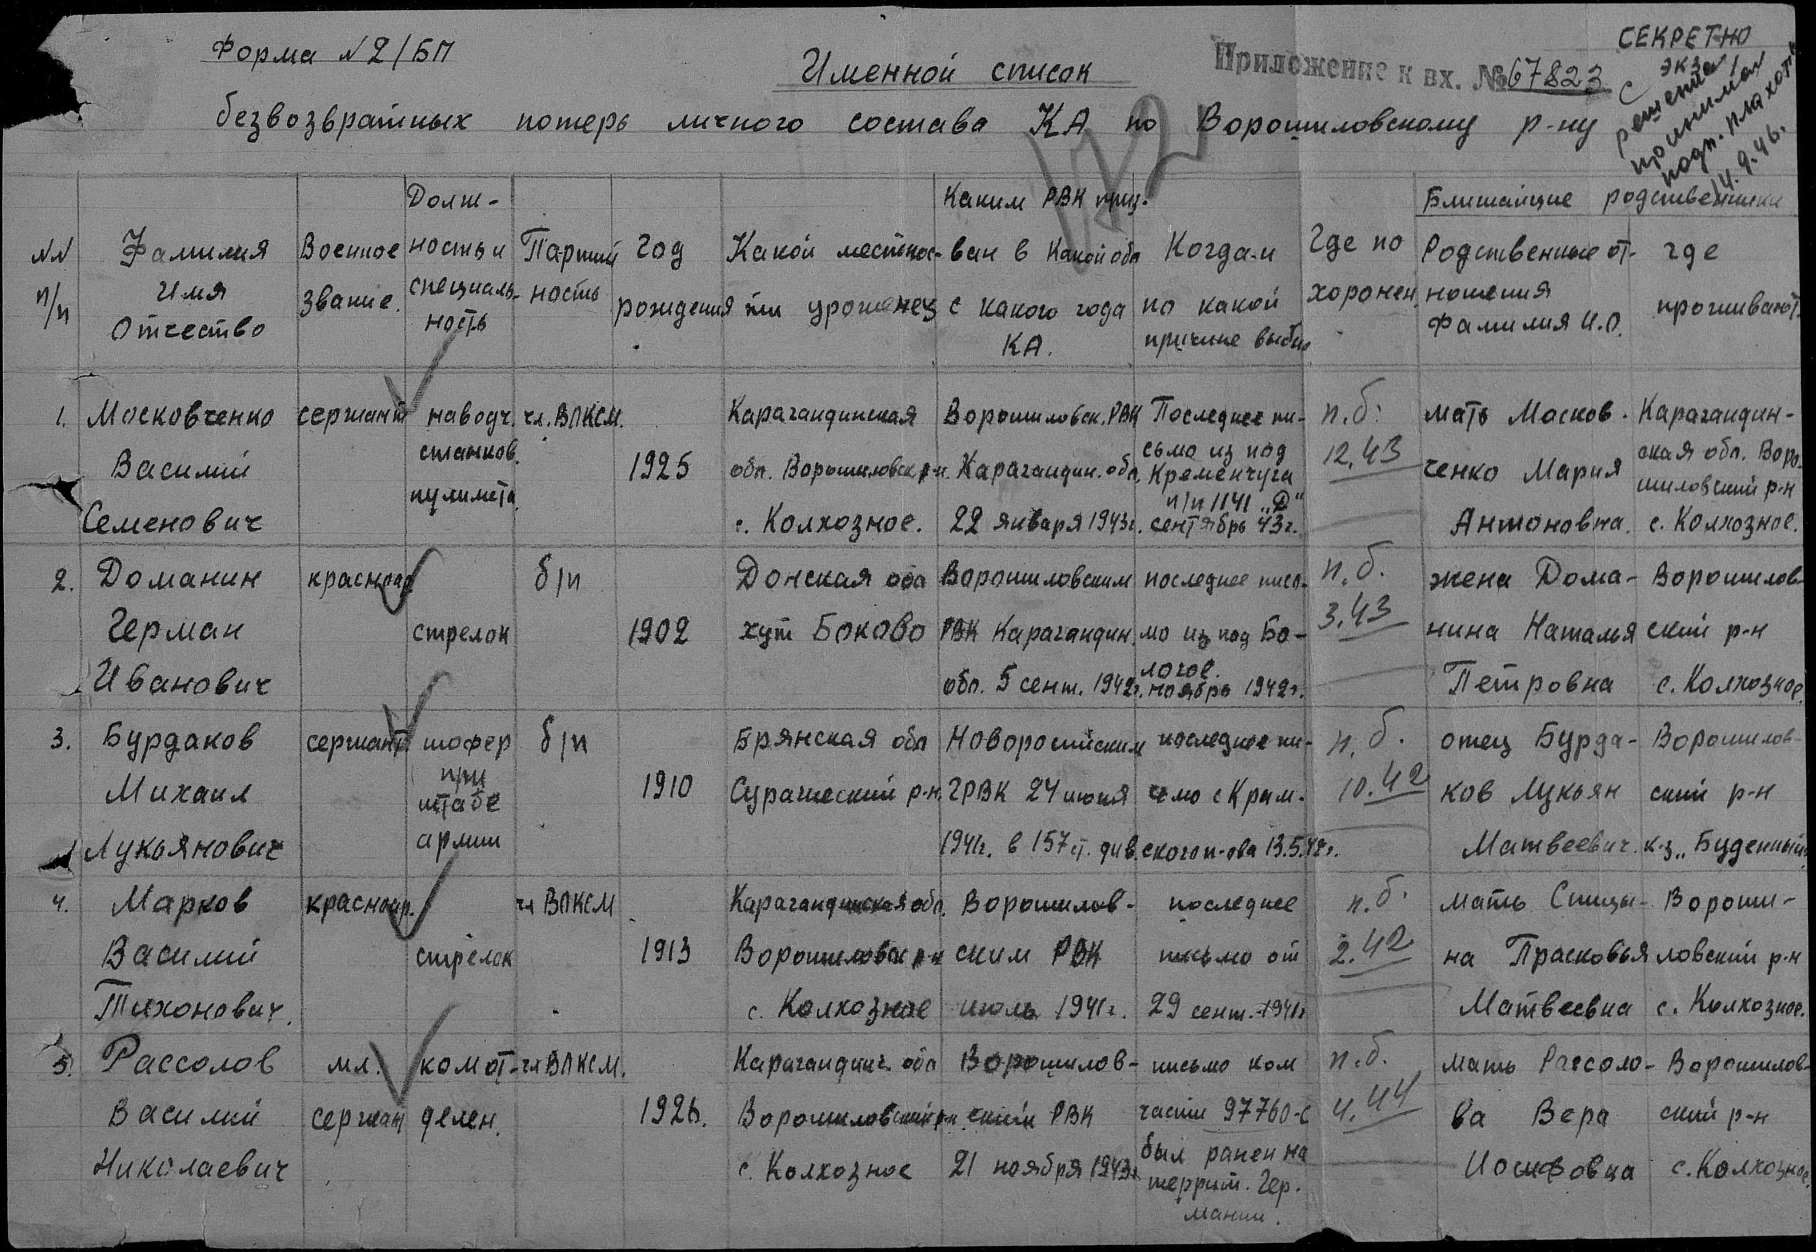 Форма №2/БП
СЕКРЕТНО
экз
Именной список
Приложение к вх. №67823
безвозвратных потерь личного состава КА по Ворошиловскому р-ну
14.9.46.
№№ п/п
Фамилия Имя Отчество
Военное звание.
Долж-
ность и
специаль-
ность
Партий
ность
Год
рождения
Какой местнос-
ти уроженец
Каким РВК приз-
ван в какой обл
с какого года
КА.
Когда и
по какой
причине выбыл
Где по
хоронен
Ближайшие родственники
Родственные от-
ношения
фамилия И.О.
где
проживают.
1.
Московченко
Василий
Семенович
сержант
наводч.
станков.
пулимета
чл. ВЛКСМ.
1925
Карагандинская
обл. Ворошиловск р-н.
с. Колхозное.
Ворошиловск. РВК
Карагандин. обл.
22 января 1943г.
Последнее пи-
сьмо из под
Кременчуга
п/п 1141 „Д“
сентябрь 43г.
п.б.
12.43
мать Москов-
ченко Мария
Антоновна.
Карагандин-
ская обл. Воро-
шиловский р-н
с. Колхозное.
2.
Доманин
Герман
Иванович
красноар
стрелок
б/п
1902
Донская обл
хут Боково
Ворошиловским
РВК Карагандин.
обл. 5 сент. 1942г.
последнее пись-
мо из под Бо-
логое.
ноябрь 1942г.
п.б.
3.43
жена Дома-
нина Наталья
Петровна
Ворошилов-
ский р-н
с. Колхозное.
3.
Бурдаков
Михаил
Лукьянович
сержант
шофер
при
штабе
армии
б/п
1910
Брянская обл
Суражеский р-н.
Новоросийским
ГРВК 24 июня
1941г. в 157 ст. див.
последнее пи-
смо с Крым-
ского п-ова 13.5.42г.
п.б.
10.42
отец Бурда-
ков Лукьян
Матвеевич.
Ворошилов-
ский р-н
к-з „Буденный“
4.
Марков
Василий
Тихонович.
красноар.
стрелок
чл ВЛКСМ
1913
Карагандинская обл.
Ворошиловск р-н
с. Колхозное
Ворошилов-
ским РВК
июль 1941г.
последнее
письмо от
29 сент. 1941г
п.б.
2.42
мать Спицы-
на Прасковья
Матвеевна
Вороши-
ловский р-н
с. Колхозное.
5.
Рассолов
Василий
Николаевич
мл.
сержант
комот-
делен.
чл ВЛКСМ.
1926.
Карагандинс. обл
Ворошиловский р-н
с. Колхозное
Ворошилов-
ский РВК
21 ноября 1943г
письмо ком
части 97760-с
был ранен на
террит. Гер.
мании.
п.б.
4.44
мать Рассоло-
ва Вера
Иосифовна
Ворошилов-
ский р-н
с. Колхозное.